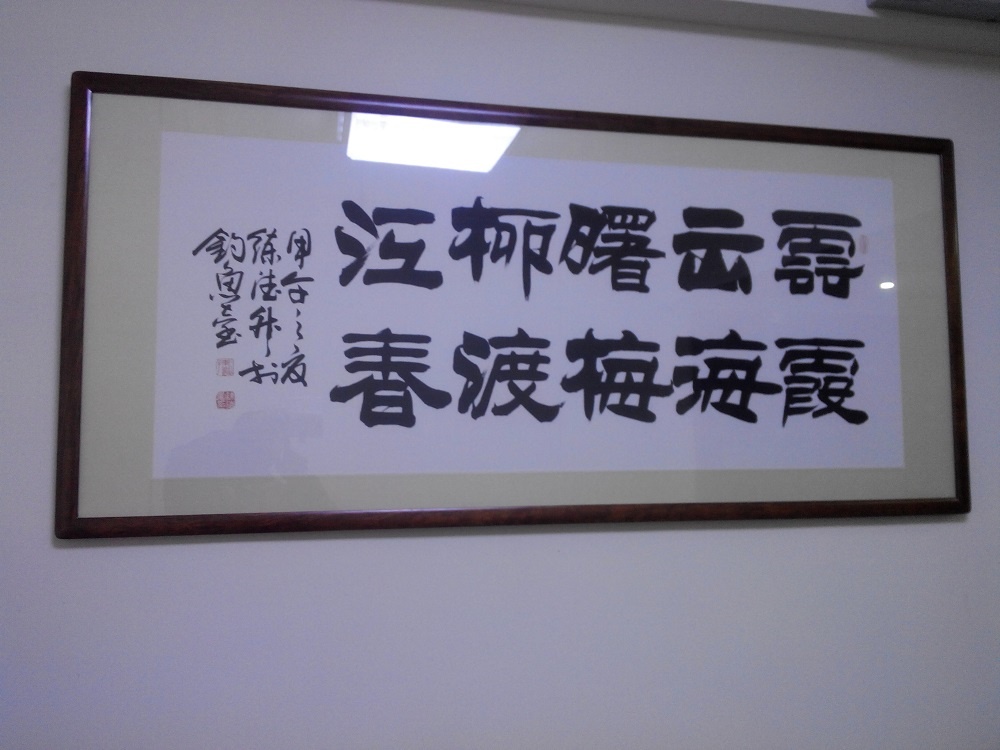 雲霞
出海
曙梅
柳渡
江春
甲午之夏
釣魚臺